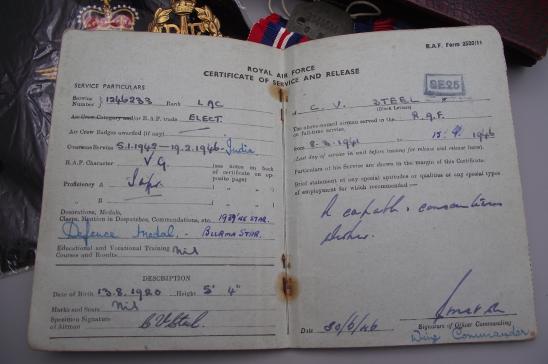 R.A.F. Form 2520/11
ROYAL AIR FORCE
CERTIFICATE OF SERVICE AND RELEASE
SERVICE PARTICULARS
Service Number 1246233 Rank LAC
Air Crew Category and/or R.A.F. trade ELECT.
Air Crew Badges awarded (if any)
Overseas Service 5.1.1942 - 19.2.1946 - India
R.A.F. Character V.G. (see notes on back of certificate on opposite page)
Proficiency A Supr.
" B
Decorations, Medals,
Clasps, Mention in Despatches, Commendations, etc. 1939/45 STAR.
Defence Medal - BURMA STAR.
Educational and Vocational Training
Courses and Results Nil
DESCRIPTION
Date of Birth 13.8.1920 Height 5' 4"
Marks and Scars Nil
Specimen Signature
of Airman
SE25
C. V. STEEL
(Block Letters)
The above-named airman served in the R.A.F.
on full-time service,
from 8.3.1941 to 15.9.1946
(Last day of service in unit before leaving for release and release leave).
Particulars of his Service are shown in the margin of this Certificate.
Brief statement of any special aptitudes or qualities or any special types
of employment for which recommended :—
A capable & conscientious
Date 30/6/46
Signature of Officer Commanding
Wing Commander